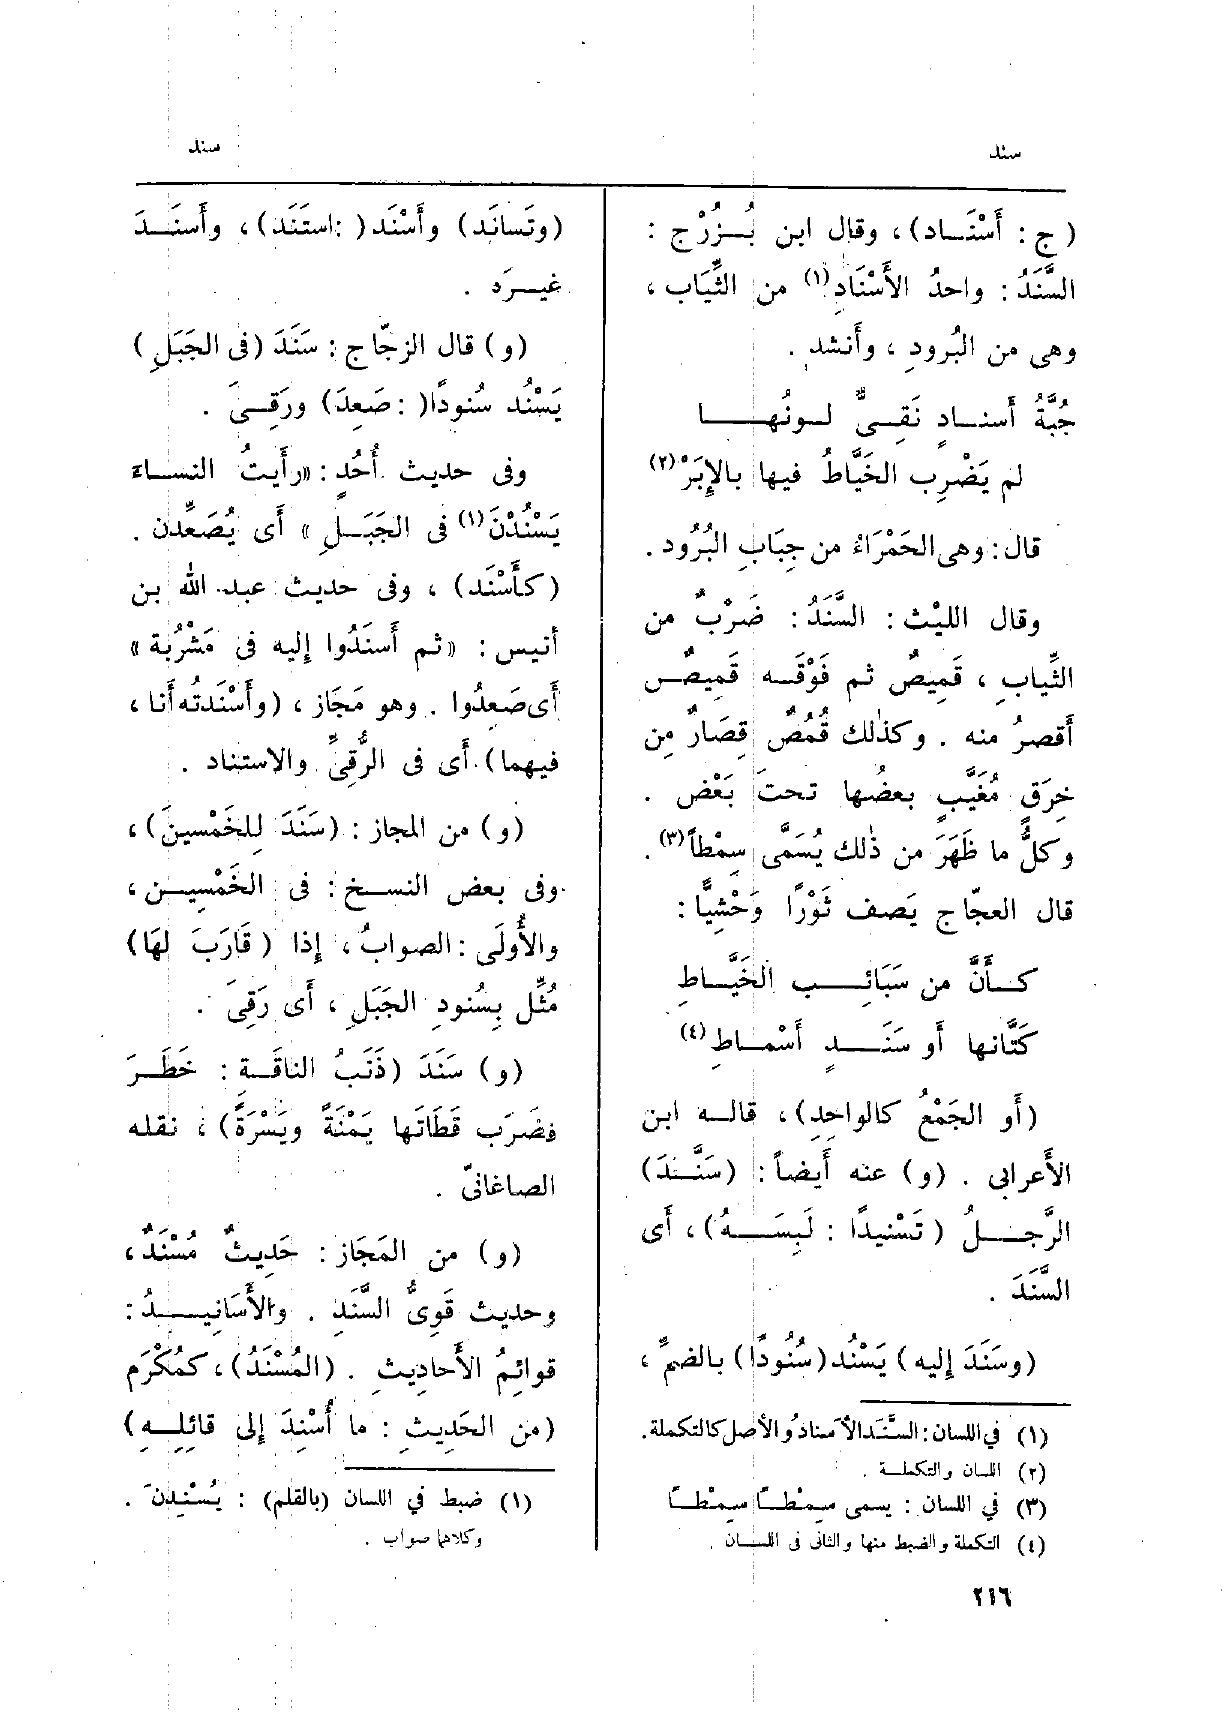 سند
سند
( ج : أَسْنَاد) ، وقال ابن بُزُرْج :
السَّنَدُ : واحدُ الأَسْنَادِ(١) من الثِّيَاب ،
وهى من البُرودِ ، وأنشد .
جُبَّةُ أسنادٍ نَقِىٌّ لونُها
لم يَضْرِب الخَيَّاطُ فيها بالإِبَرْ(٢)
قال : وهى الحَمْرَاءُ من جِبَابِ البُرُود .
وقال الليْث : السَّنَدُ : ضَرْبٌ من
الثِّيابِ ، قَمِيصٌ ثم فَوْقَه قَمِيصٌ
أَقصرُ منه . وكذٰلك قُمُصٌ قِصَارٌ مِن
خِرَقٍ مُغَيَّبٍ بعضُها تحتَ بَعْض .
وكلُّ ما ظَهَرَ من ذٰلك يُسَمَّى سِمْطاً(٣) .
قال العجّاج يَصف ثَوْرًا وَحْشِيًّا :
كأَنَّ من سَبَائِب الخَيَّاطِ
كَتَّانها أو سَنَدٍ أَسْماطِ(٤)
(أَو الجَمْعُ كالواحِدِ) ، قاله ابن
الأَعرابى . (و) عنه أَيضاً : (سَنَّدَ)
الرَّجلُ (تَسْنيدًا : لَبِسَهُ) ، أَى
السَّنَدَ .
(وسَنَدَ إليه) يَسْنُد (سُنُودًا) بالضمّ ،
(١) في اللسان : السَّنَد الأسناد والأصل كالتكملة .
(٢) اللسان والتكملة .
(٣) في اللسان : يسمى سِمْطًا سِمْطًا
(٤) التكملة والضبط منها والثانى فى اللسان .
(وتَسانَد) وأَسْنَد ( : استَنَد) ، وأَسنَدَ
غيرَه .
(و) قال الزجّاج : سَنَدَ (فى الجَبَلِ)
يَسْنُد سُنودًا( : صَعِدَ) ورَقِىَ .
وفى حديث أُحُدٍ : «رأَيتُ النساءَ
يَسْنُدْنَ(١) فى الجَبَلِ » أَى يُصَعِّدن .
(كأَسْنَد) ، وفى حديث عبد الله بن
أنيس : «ثم أَسنَدُوا إليه فى مَشْرُبة »
أَى صَعِدُوا . وهو مَجَاز ، (وأَسْنَدتُه أنا ،
فيهما) أَى فى الرُّقِىِّ والاستناد .
(و) من المجاز : (سَنَدَ لِلخَمْسينَ) ،
وفى بعض النسخ : فى الخَمْسِين ،
والأُولَى : الصوابُ ، إذا ( قَارَبَ لَهَا)
مُثِّل بِسُنودِ الجَبَلِ ، أَى رَقِىَ .
(و) سَنَدَ (ذَنَبُ الناقَةِ : خَطَرَ
فضَرَب قَطَاتَها يَمْنَةً ويَسْرَةً) ، نقله
الصاغانىّ .
(و) من المَجَاز : حَدِيثٌ مُسْنَدٌ ،
وحديث قَوِىُّ السَّنَدِ . والأَسَانِيدُ :
قوائِمُ الأَحادِيثِ . (المُسْنَدُ) ، كمُكْرَمٍ
(من الحَدِيثِ : ما أُسْنِدَ إلى قائِلِهِ)
(١) ضبط في اللسان (بالقلم) : يُسْنِدِنَ .
وكلاهما صواب .
٢١٦